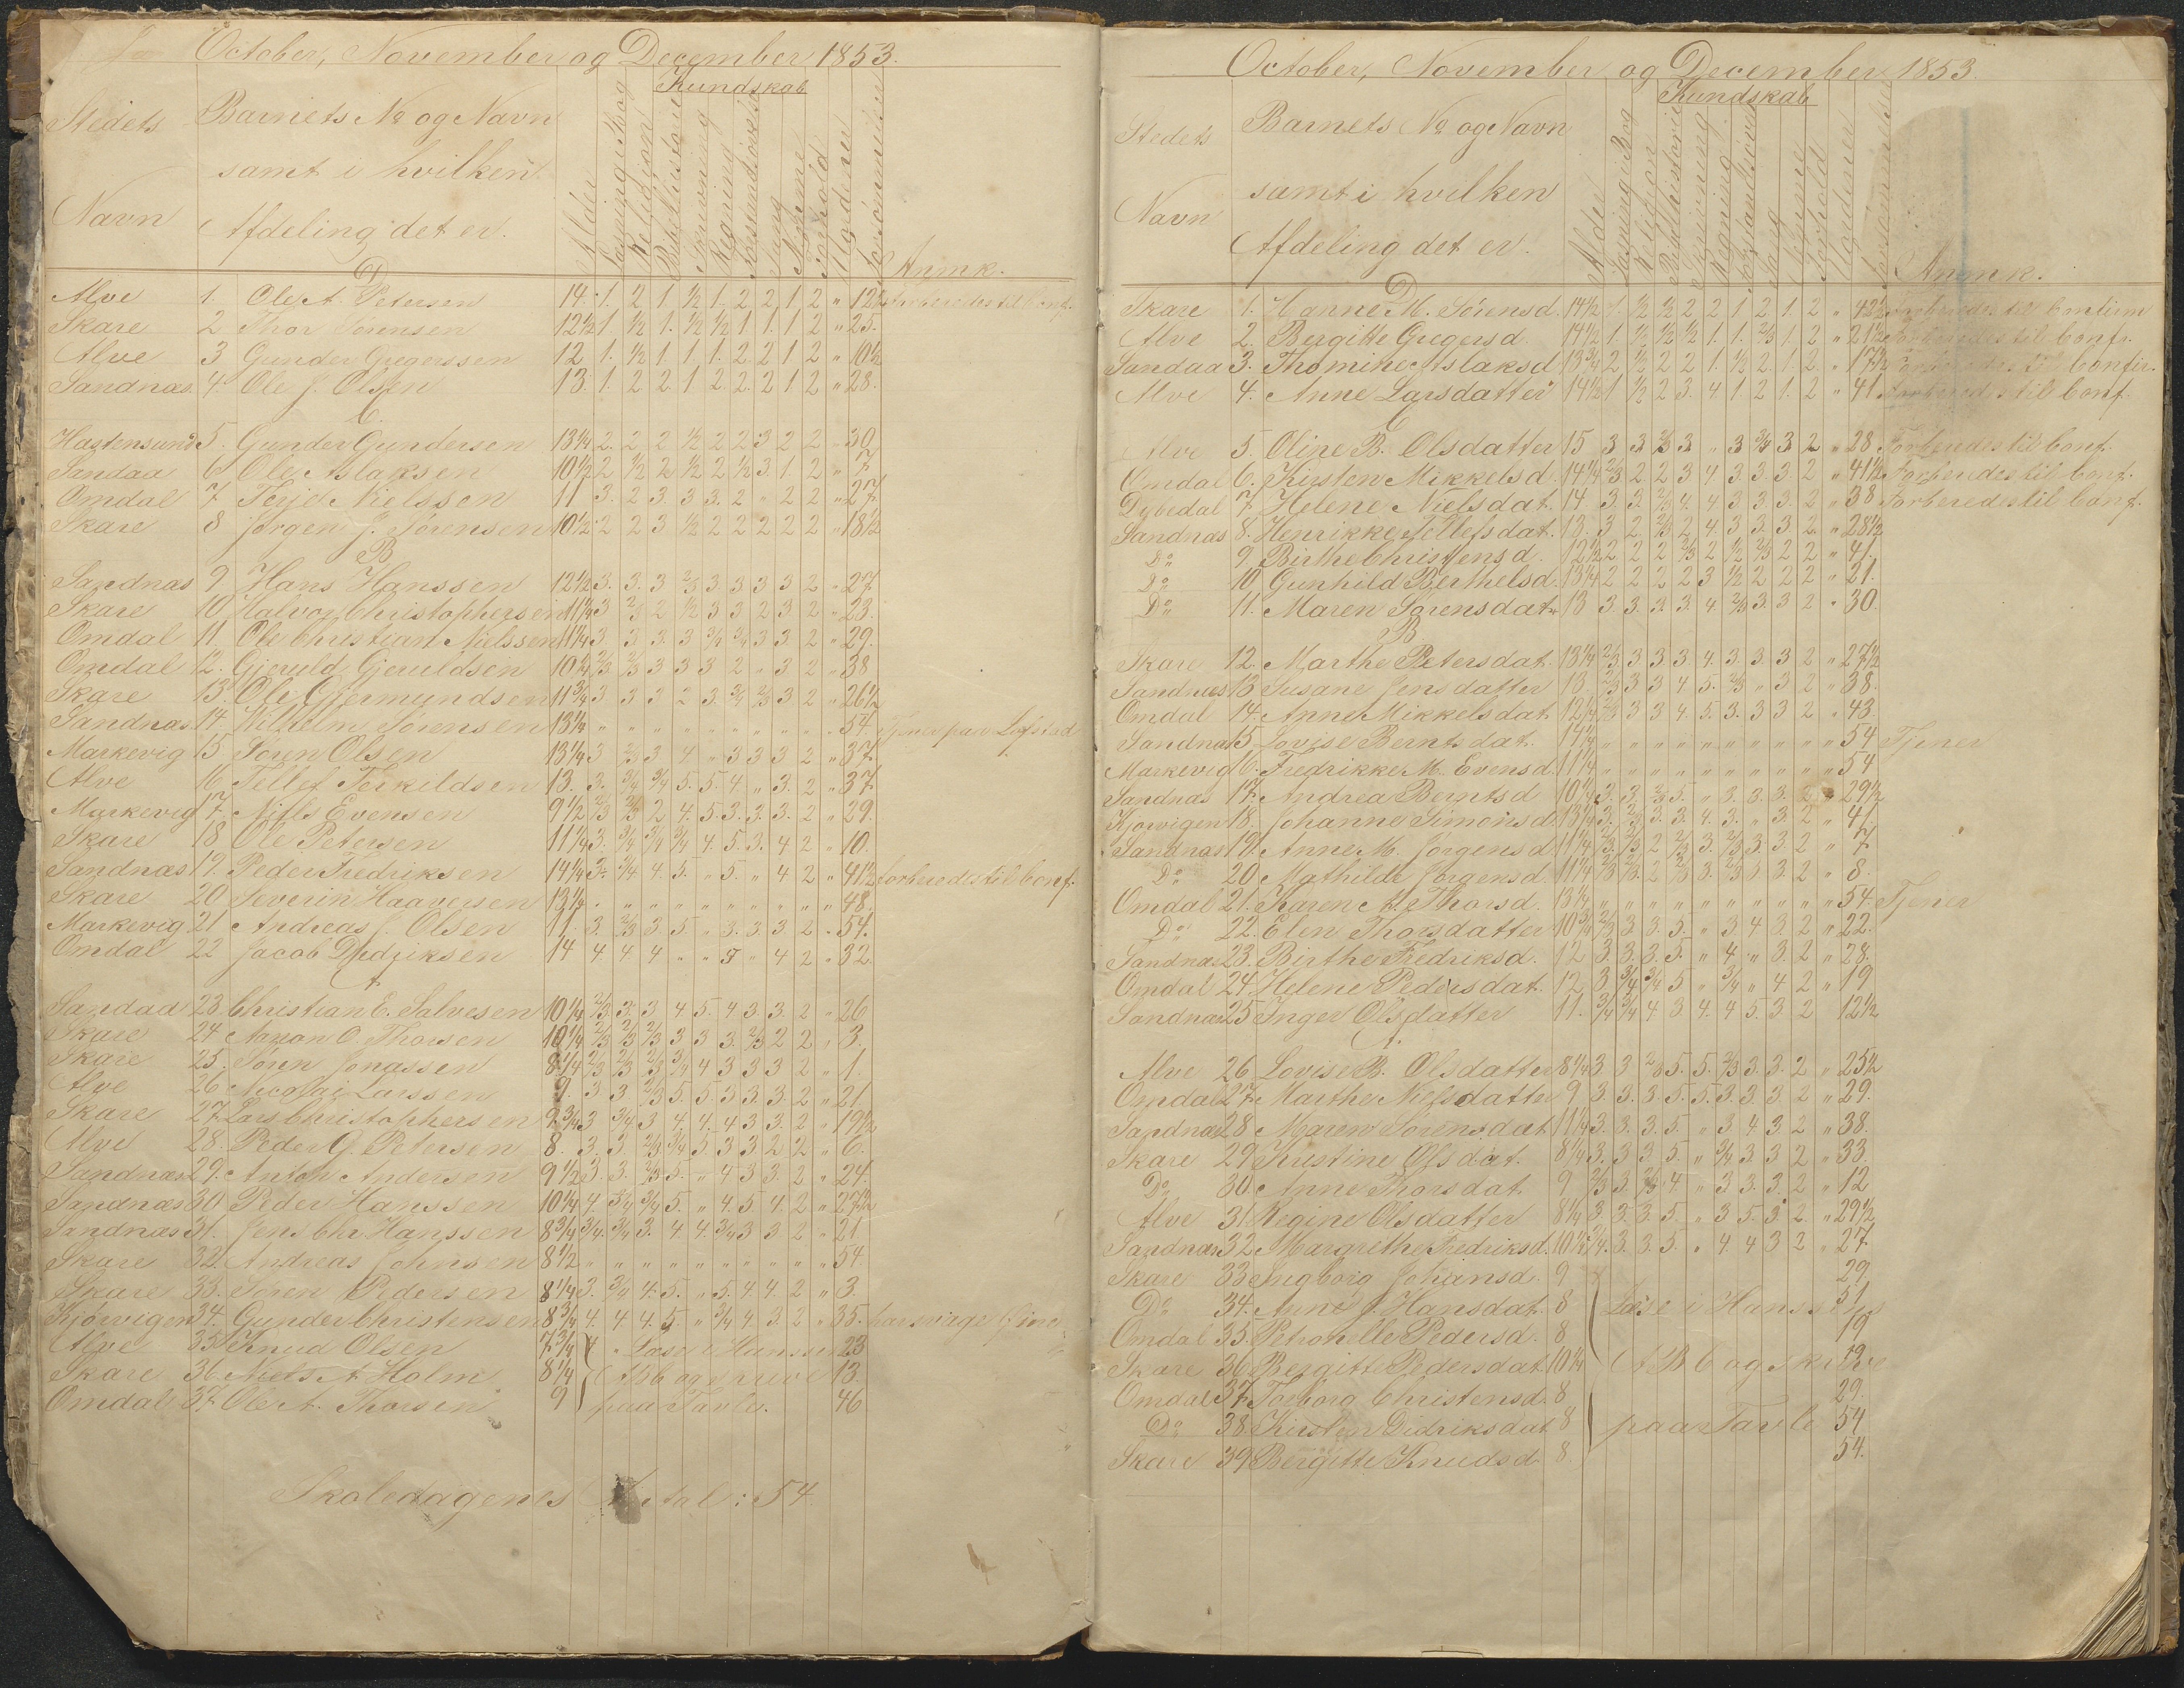 October, November og December 1853.
Kundskab
Stedets Navn
Barnets No og Navn
samt i hvilken
Afdeling det er.
Alder
Læsning i Bog
Religion
Bibelhistorie
Skrivning
Regning
Sang
Næmme
Forhold
Mødedage
Forsømmelse
Anmk.
D
Alve 1. Ole A. Petersen 14. 1. 2 1 ½ 1. 2 2 1 2 " 12½ forberedes til Conf.
Skare 2 Thor Sørensen 12½ 1 ½ 1. ½ ½ 1 1. 1 2 " 25.
Alve 3 Gunder Gregerssen 12 1. ½ 1 1 1. 2 2 1 2 " 10½
Sandnæs 4. Ole J. Olsen 13. 1. 2 2 1 2 2. 2 1 2 " 28.
C.
Hastensund 5. Gunder Gundersen 13¼ 2. 2 2 ½ 2 2 3 2 2 " 30
Sandaa 6 Ole Aslaksen 10½ 2 ½ 2 ½ 2 ½ 3 1 2 " 7
Omdal 7 Terje Nielssen 11 3. 2 3. 3 3. 2 " 2 2 " 27
Skare 8 Jørgen J. Sørensen 10½ 2 2 3 ½ 2 2 2 2 2 " 18½
B
Sandnæs 9 Hans Hanssen 12½ 3. 3. 3 ⅔ 3 3 3 3 2 " 27
Skare 10. Halvor Christophersen 11¼ 3 ⅔ 2 ½ 3 3 2 3 2 " 23.
Omdal 11. Ole Christian Nielssen 11¼ 3 3 3. 3 ¾ ¾ 3 3. 2 " 29.
Omdal 12. Gjeruld Gjeruldsen 10¼ ⅔ ⅔ 3 3 3 2 " 3 2 " 38
Skare 13. Ole Gjermundsen 11¾ 3 3 3 2 3. ¾ ⅔ 3 2 " 26½
Sandnæs 14. Wilhelm Sørensen 13¼ " " " " " " " " " " 54
Markevig 15 Søren Olsen 13¼ 3 ⅔ 3 4 " 3 3 3 2 " 37
Alve 16 Tellef Terkildsen 13. 3. ¾ ¾ 5. 5. 4 " 3. 2 " 37
Markevig 17. Niels Evensen 9½ ⅔ ⅔ 2 4. 5. 3. 3. 3. 2 " 29.
Skare 18 Ole Petersen 11¼ 3. ¾ ¾ ¾ 4. 5. 3. 4 2 " 10.
Sandnæs 19. Peder Fredriksen 14¼ 3. ¾ 4. 5. " 5. " 4 2 " 41½ forberedes til Conf.
Skare 20 Severin Haaversen 13¼ " " " " " " " " " " 48.
Markevig 21 Andreas J. Olsen 11. 3. ⅔ 3 5 " 3. 3. 3 2 " 54.
Omdal 22 Jacob Didriksen 14 4. 4 4 " " 5 " 4 2 " 32.
A
Sandaa 23. Christian E. Salvesen 10¼ ⅔ 3. 3 4 5. 4 3 3. 2 " 26
Skare 24 Aanon O. Thorsen 10¼ ⅔ ⅔ ⅔ 3 3 3. ⅔ 2 2 " 3.
Skare 25. Søren Jonassen 8¼ ⅔ ⅔ ⅔ ¾ 4 3 3 3 2 " 1.
Alve 26 Nicolai Larssen 9. 3 3 ⅔ 5. 5 3 3. 3. 2 " 21
Skare 27. Lars Christophersen 9¾ 3 ¾ 3 4. 4. 4 3 3. 2 " 19½
Alve 28. Peder G. Petersen 8. 3. 3. ⅔ ¾ 5. 3 3 2 2 " 6.
Sandnæs 29. Anton Andersen 9½ 3 3. ⅔ 5. " 4 3 3. 2 " 24.
Sandnæs 30 Peder Hanssen 10¼ 4. ¾ ¾ 5. " 4. 5. 4. 2 " 27½
Sandnæs 31. Jens Chr Hanssen 8¾ ¾. ¾ 3. 4. 4. ¾ 3 3 2 " 21
Skare 32. Andreas Johnsen 8½ " " " " " " " " " " 54.
Skare 33. Søren Pedersen 8¼ 3. ¾ 4. 5. " 5. 4. 4. 2 " 3.
Kjørvigen 34. Gunder Christensen 8¾ 4. 4 4. 5. " ¾ 4. 3. 2 " 35. har svage Øine
Alve 35. Knud Olsen 7¾ Læse i Hanssen 23
Skare 36 Niels A. Holm 8¼ ABC og skrive 13.
Omdal 37. Ole A. Thorsen 9 paa Tavle. 46
Skoledagenes Antal: 54.
October, November og December 1853.
Kundskab
Stedets Navn
Barnets No og Navn
samt i hvilken
Afdeling det er.
Alder
Læsning i Bog
Religion
Bibelhistorie
Skrivning
Regning
Sang
Næmme
Forhold
Mødedage
Forsømmelse
Anmk.
D
Skare 1. Hanne M. Sørensd. 14½ 1. ½ ½ 2 2 1 2 1. 2 " 42½
Alve 2. Bergitte Gregersd. 14½ 1. ½ ½ ½ 1. 1. ⅔ 1 2 " 21½ forberedes til Conf.
Sandaa 3. Thomine Aslaksd 13¾ 2 ½ 2 2 1. ½ 2. 1. 2 " 17½ forberedes til Confir.
Alve 4. Anne Larsdatter 14½ 1 ½ 2 3. 4 1. 2 1. 2 " 41 forberedes til Conf.
C
Alve 5. Oline B. Olsdatter 15 3 3 ⅔ 3 " 3 ¾ 3 2 " 28 Forberedes til Conf.
Omdal 6. Kirsten Mikkelsd. 14¼ ⅔ 2 2 3 4 3. 3. 3. 2 " 41½ forberedes til Conf.
Dybedal 7. Helene Nielsdat. 14 3. 3. ⅔ 4. 4 3 3 3. 2 " 38 Forberedes til Conf.
Sandnæs 8. Henrikke Tellefsdat. 13 3 2 ⅔ 2 4. 3 3. 3 2 " 28½
Do 9. Birthe Christensd. 12½ 2 2 2 ⅔ 2 ½ ⅔ 2 2 " 41.
Do 10 Gunhild Berthelsd. 13¼ 2 2 2 2 3 ½ 2 2 2 " 21.
Do 11. Maren Sørensdat. 13 3. 3. 2. 3. 4. ⅔ 3. 3 2 " 30.
B
Skare 12. Marthe Petersdat. 13¼ ⅔ 3. 3. 3. 4. 3. 3. 3 2 " 27½
Sandnæs 13 Susane Jensdatter 13 ⅔ 3 3 4. 5. ⅔ " 3 2 " 38.
Omdal 14. Anne Mikkelsdat. 12¼ ⅔ 3 3 4. 5. 3. 3 3 2 " 43
Sandnæs 15 Lovise Berntsdat. 14¼ " " " " " " " " " " 54 Tjener
Markevig 16. Fredrikke M. Evensd. 11¼ " " " " " " " " " " 54
Sandnæs 17. Andrea Berntsd 10¼ 3. 3. ⅔ 5. " 3. 3. 3. 2 " 29½
Kjørvigen 18. Johanne Simonsd. 13¼ 3. ⅔ 3. 3. 4. 3. " 3 2 " 41
Sandnæs 19. Anne M. Jørgensd. 11¼ ⅔ ⅔ 2 ⅔ 3. ⅔ 3. 3. 2 " 7
Do 20. Mathilde Jørgensd. 11¼ ⅔ ⅔ 2 ⅔ 3. ⅔ 3 3. 2 " 8.
Omdal 21. Karen A. Thorsd. 13¼ " " " " " " " " " " 54. Tjener
Do 22. Elen Thorsdatter 10¾ ⅔ 3 3. 5. " 3 4 3. 2 " 22.
Sandnæs 23. Birthe Fredriksd. 12 3. 3. 3. 5. " 4 " 3. 2 " 28.
Omdal 24. Helene Pedersdat. 12. 3 ¾ ¾ 5 " ¾ " 4 2 " 19
Sandnæs 25 Inger Olsdatter 11. ¾ ¾ 4 3. 4. 4 5. 3 2 12½
Alve 26 Lovise B. Olsdatter 8¼ 3 3 ⅔ 5. 5. ⅔ 3. 3. 2 " 25½
Omdal 27. Marthe Nielsdatter 9 3. 3. 3. 5. 5. 3. 3. 3. 2 " 29.
Sandnæs 28 Maren Sørensdat. 11¼ 3. 3. 3. 5. " 3 4 3 2 " 38.
Skare 29 Kristine Olsdat. 8¼ 3. 3 3 5. " ¾ 3. 3 2 " 33.
Do 30. Anne Thorsdat. 9 ⅔ 3. ⅔ 4. " 3 3. 3. 2 " 12
Alve 31 Regine Olsdatter 8¼ 3. 3. 3. 5. " 3 5. 3. 2. " 29½
Sandnæs 32. Margrethe Fredriksd. 10¼ ¾. 3. 3. 5. " 4. 4 3 2 " 27.
Skare 33 Ingborg Johansd. 9 29
Do 34. Anne J. Hansdat. 8 Læse i Hanssens 51
Omdal 35. Petronelle Pedersd. 8 19
Skare 36 Bergitte Pedersdat. 10¼ ABC og skrive
Omdal 37. Torborg Christensd. 8 29.
Do 38. Kirsten Didriksdat 8 paa Tavle 54
Skare 39 Bergitte Knudsd. 8. 54.